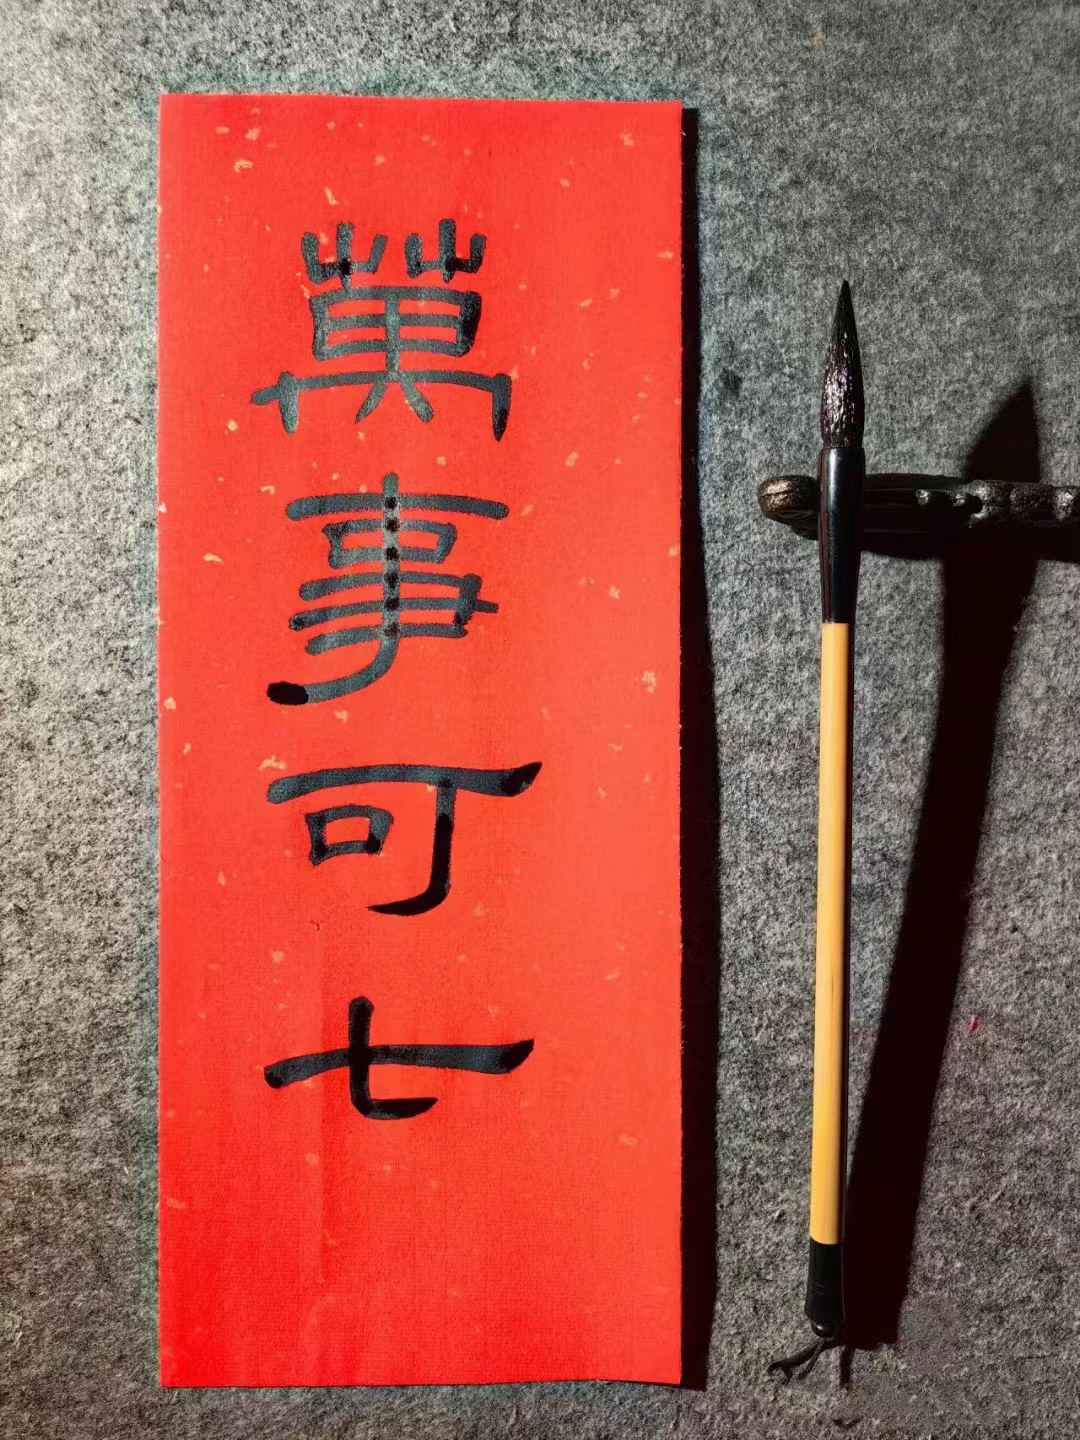 萬事可七